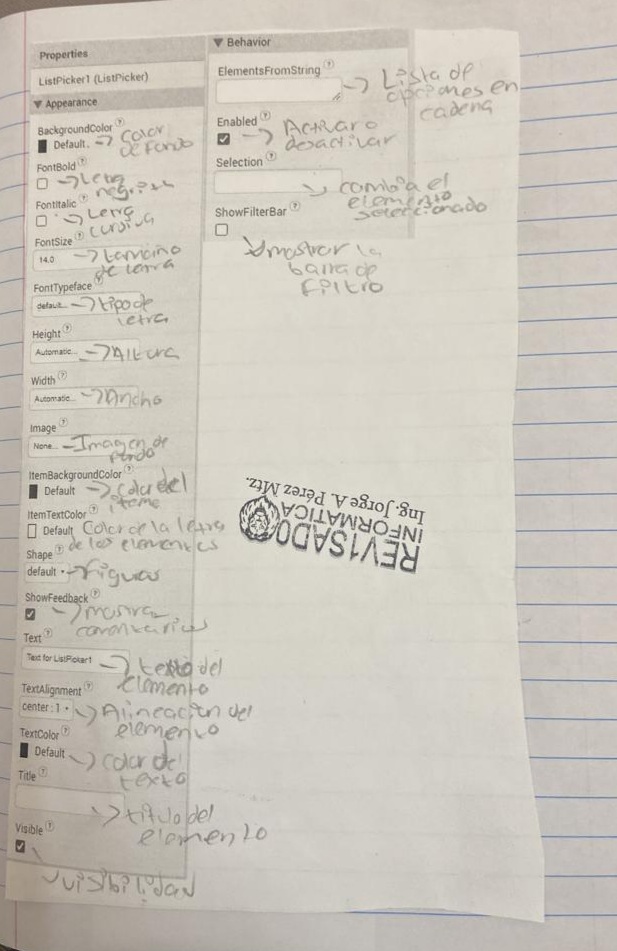 Properties
ListPicker1 (ListPicker)
▼ Appearance
BackgroundColor ?
Default. → Color
de Fondo
FontBold ?
→ Letra
negrita
FontItalic ?
→ Letra
cursiva
FontSize ?
14.0 → tamaño
de letra
FontTypeface ?
default... → tipo de
letra
Height ?
Automatic... → Altura
Width ?
Automatic... → Ancho
Image ?
None... → Imagen de
fondo
ItemBackgroundColor ?
Default → Color del
iteme
ItemTextColor ?
Default Color de la letra
de los elementos
Shape ?
default → Figuras
ShowFeedback ?
→ mostrar
comentarios
Text ?
Text for ListPicker1 → texto del
elemento
TextAlignment ?
center : 1 → Alineación del
elemento
TextColor ?
Default → color del
texto
Title ?
→ titulo del
elemento
Visible ?
visibilidad
▼ Behavior
ElementsFromString ?
→ Lista de
opciones en
cadena
Enabled ?
→ Activar o
desactivar
Selection ?
→ cambia el
elemento
seleccionado
ShowFilterBar ?
mostrar la
barra de
filtro
REVISADO
INFORMATICA
Ing. Jorge A. Pérez Mtz.